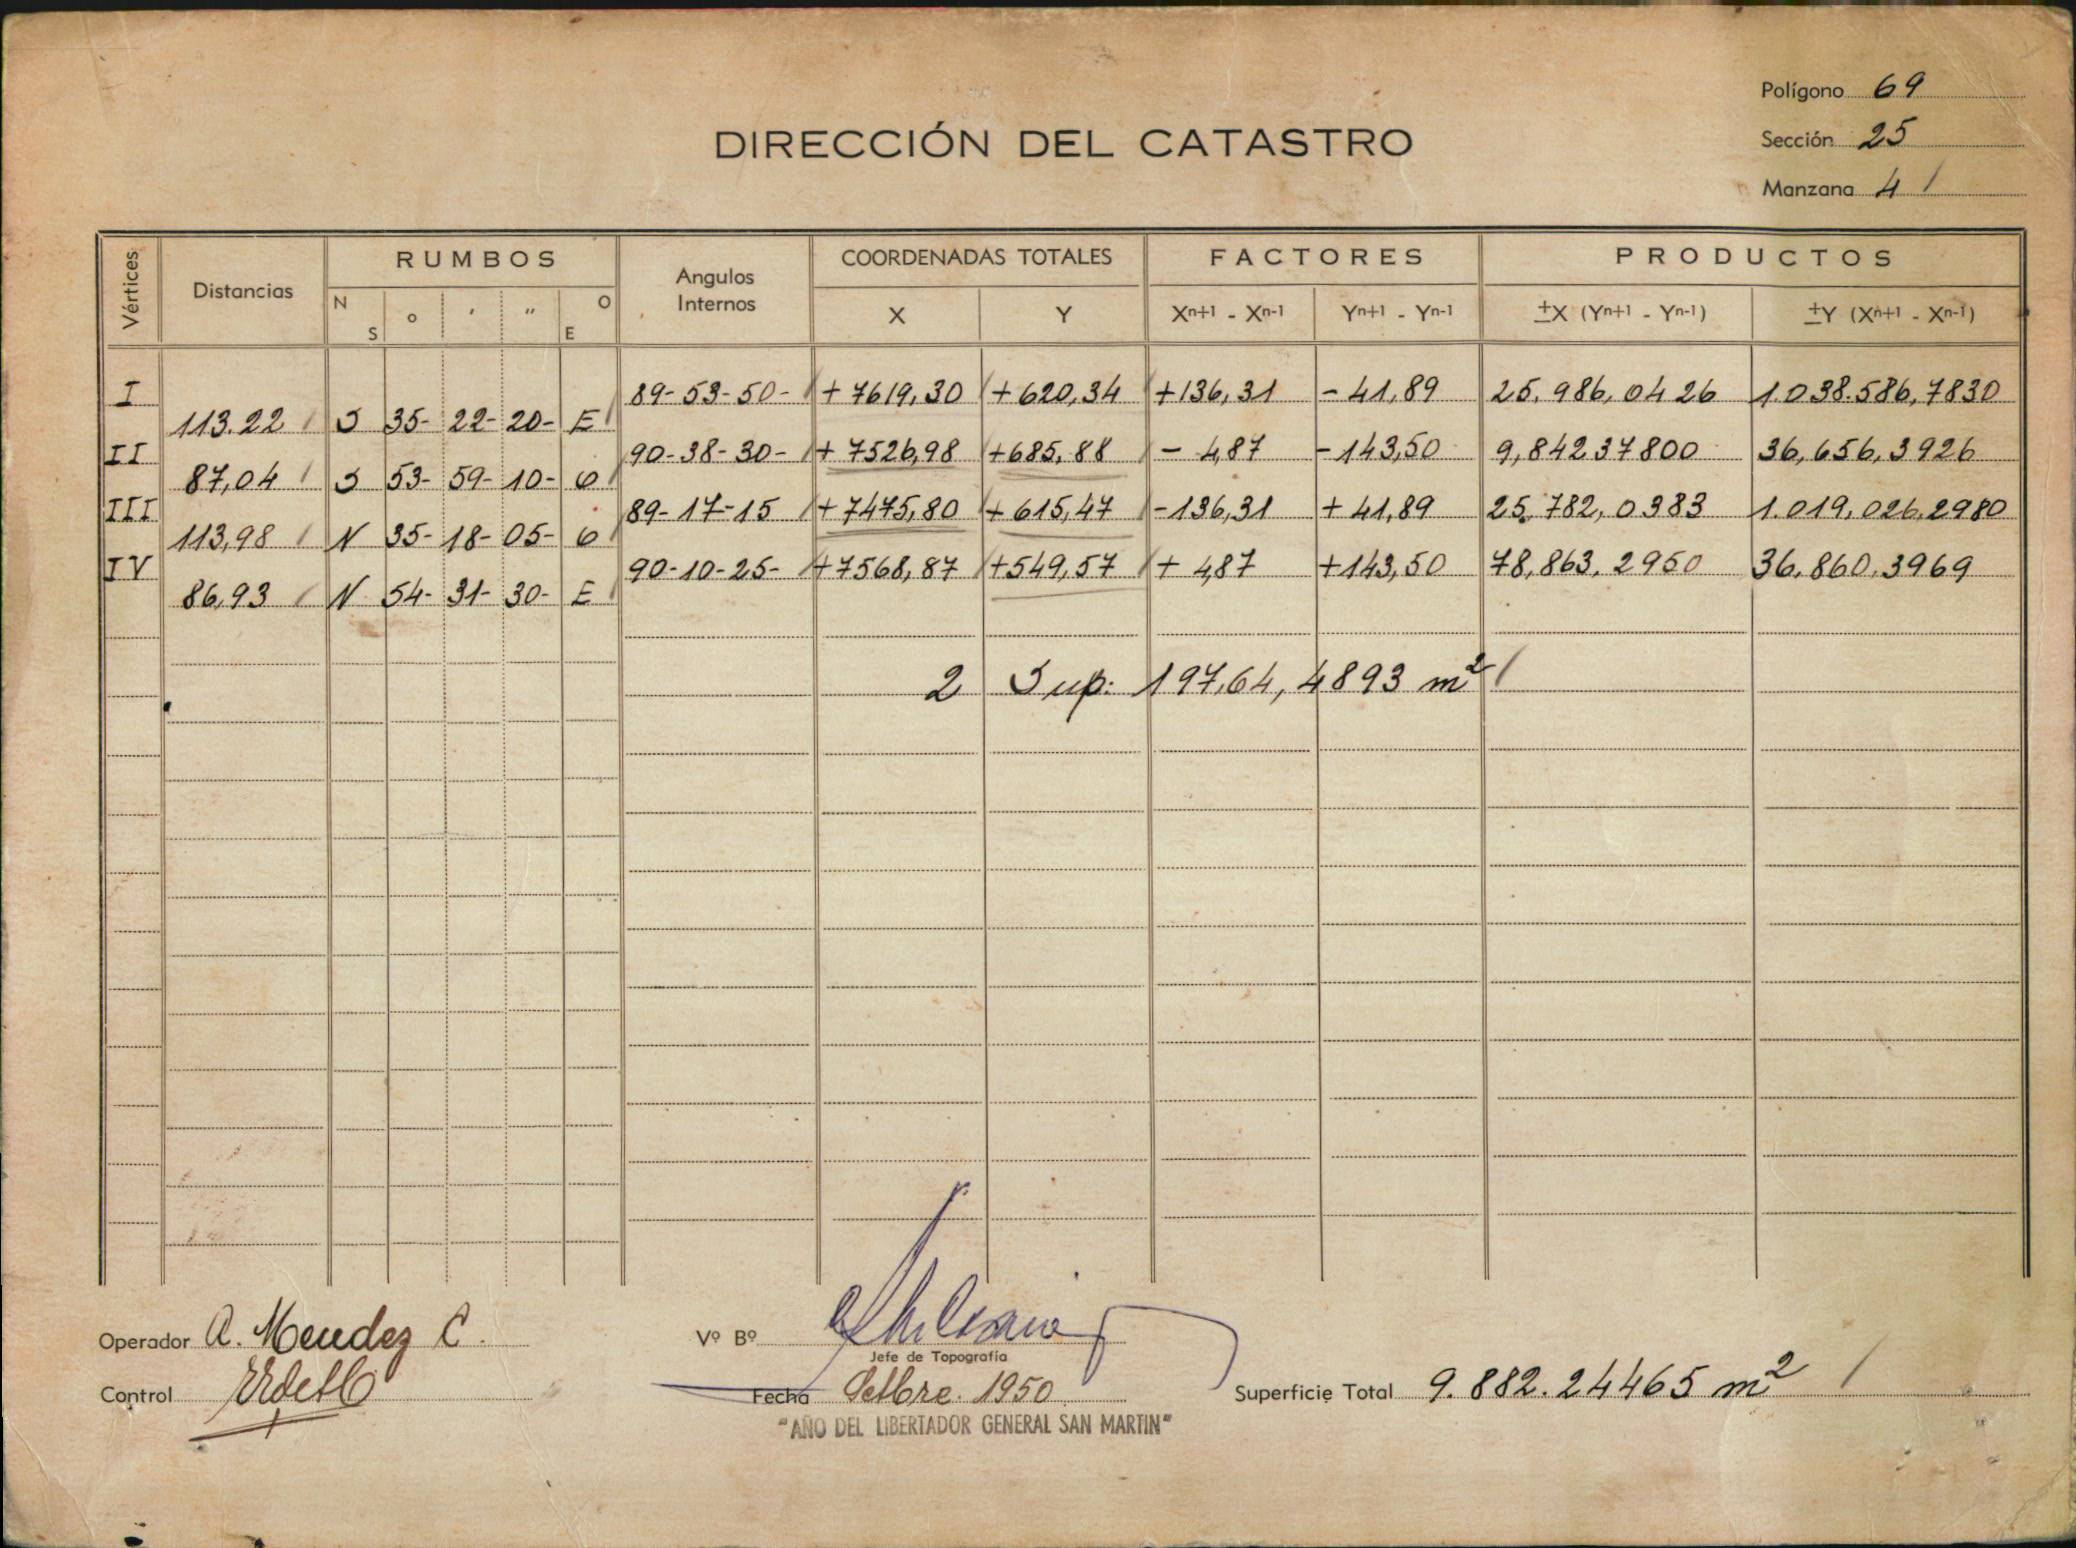 Polígono 69
DIRECCIÓN DEL CATASTRO
Sección 25
Manzana 4
Vértices Distancias RUMBOS Angulos Internos COORDENADAS TOTALES FACTORES PRODUCTOS
N S o ′ ″ O E X Y Xⁿ⁺¹ - Xⁿ⁻¹ Yⁿ⁺¹ - Yⁿ⁻¹ ±X (Yⁿ⁺¹ - Yⁿ⁻¹) ±Y (Xⁿ⁺¹ - Xⁿ⁻¹)
I 89-53-50- +7619,30 +620,34 +136,31 -41,89 25.986,0426 1.038.586,7830
113.22 S 35- 22- 20- E
II 90-38-30- +7526,98 +685,88 - 4,87 -143,50 9,84237800 36,656,3926
87,04 S 53- 59- 10- O
III 89-17-15 +7475,80 +615,47 -136,31 +41,89 25.782,0383 1.019,026.2980
113,98 N 35- 18- 05- O
IV 90-10-25- +7568,87 +549,57 + 4,87 +143,50 78,863.2950 36.860.3969
86,93 N 54- 31- 30- E
2 Sup: 197.64,4893 m²
Operador A. Mendez C.
Vº Bº
Jefe de Topografía
Control
Fecha Setbre. 1950
Superficie Total 9.882.24465 m²
"AÑO DEL LIBERTADOR GENERAL SAN MARTIN"